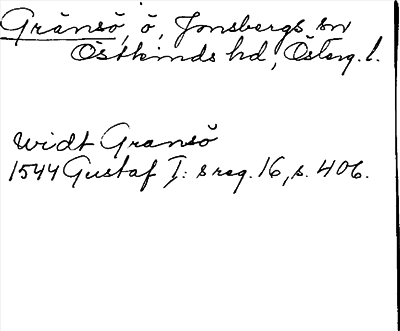 Gränsö, ö, Jonsbergs sn
Östkinds hd, Österg. l.
widt Gransö
1544 Gustaf I:s reg. 16, s. 406.